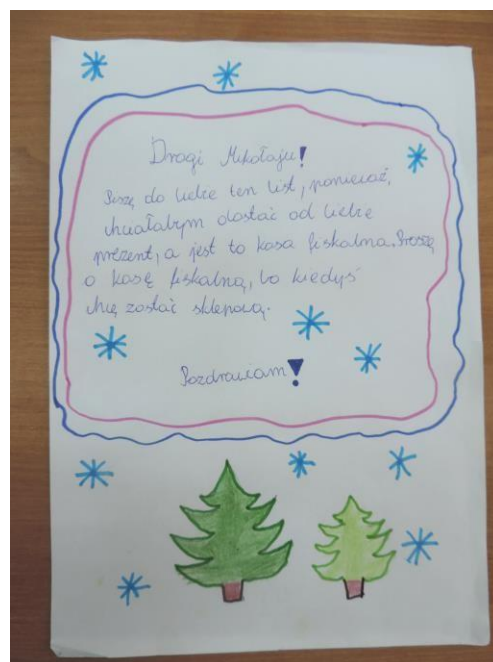 Drogi Mikołaju!
Piszę do Ciebie ten list, ponieważ,
chciałabym dostać od Ciebie
prezent, a jest to kasa fiskalna. Proszę
o kasę fiskalną, bo kiedyś
chcę zostać sklepową.
Pozdrawiam!